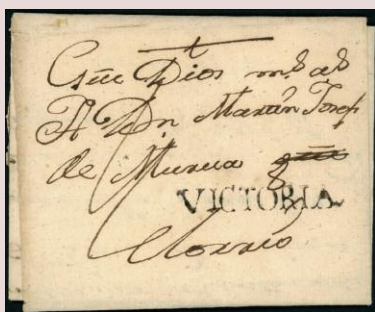 Que Dios m.s a.s
A Dn. Martin Josef
de Murua
VICTORIA
Elorrio